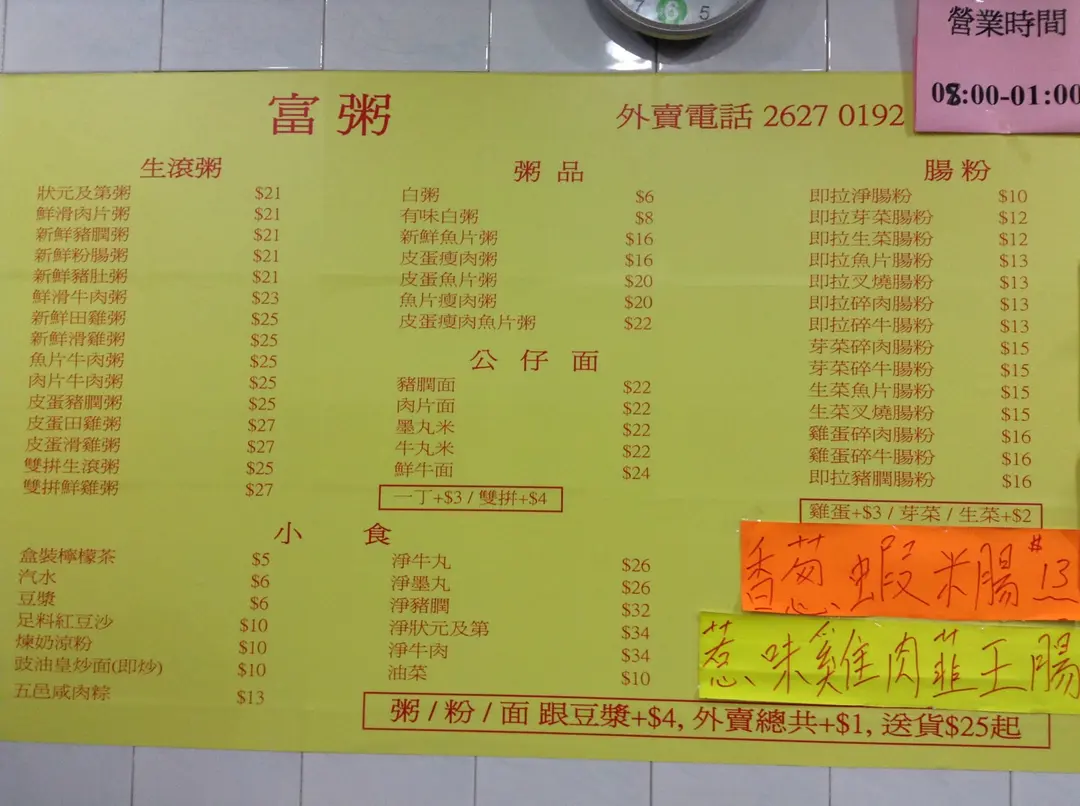 7 6 5
營業時間
08:00-01:00
富粥
外賣電話 2627 0192
生滾粥
狀元及第粥 $21
鮮滑肉片粥 $21
新鮮豬膶粥 $21
新鮮粉腸粥 $21
新鮮豬肚粥 $21
鮮滑牛肉粥 $23
新鮮田雞粥 $25
新鮮滑雞粥 $25
魚片牛肉粥 $25
肉片牛肉粥 $25
皮蛋豬膶粥 $25
皮蛋田雞粥 $27
皮蛋滑雞粥 $27
雙拼生滾粥 $25
雙拼鮮雞粥 $27
粥 品
白粥 $6
有味白粥 $8
新鮮魚片粥 $16
皮蛋瘦肉粥 $16
皮蛋魚片粥 $20
魚片瘦肉粥 $20
皮蛋瘦肉魚片粥 $22
公 仔 面
豬膶面 $22
肉片面 $22
墨丸米 $22
牛丸米 $22
鮮牛面 $24
一丁+$3 / 雙拼+$4
腸 粉
即拉淨腸粉 $10
即拉芽菜腸粉 $12
即拉生菜腸粉 $12
即拉魚片腸粉 $13
即拉叉燒腸粉 $13
即拉碎肉腸粉 $13
即拉碎牛腸粉 $13
芽菜碎肉腸粉 $15
芽菜碎牛腸粉 $15
生菜魚片腸粉 $15
生菜叉燒腸粉 $15
雞蛋碎肉腸粉 $16
雞蛋碎牛腸粉 $16
即拉豬膶腸粉 $16
雞蛋+$3 / 芽菜 / 生菜+$2
香葱蝦米腸 $13
惹味雞肉韮王腸
小 食
盒裝檸檬茶 $5
汽水 $6
豆漿 $6
足料紅豆沙 $10
煉奶涼粉 $10
豉油皇炒面(即炒) $10
五邑咸肉粽 $13
淨牛丸 $26
淨墨丸 $26
淨豬膶 $32
淨狀元及第 $34
淨牛肉 $34
油菜 $10
粥 / 粉 / 面 跟豆漿+$4, 外賣總共+$1, 送貨$25起